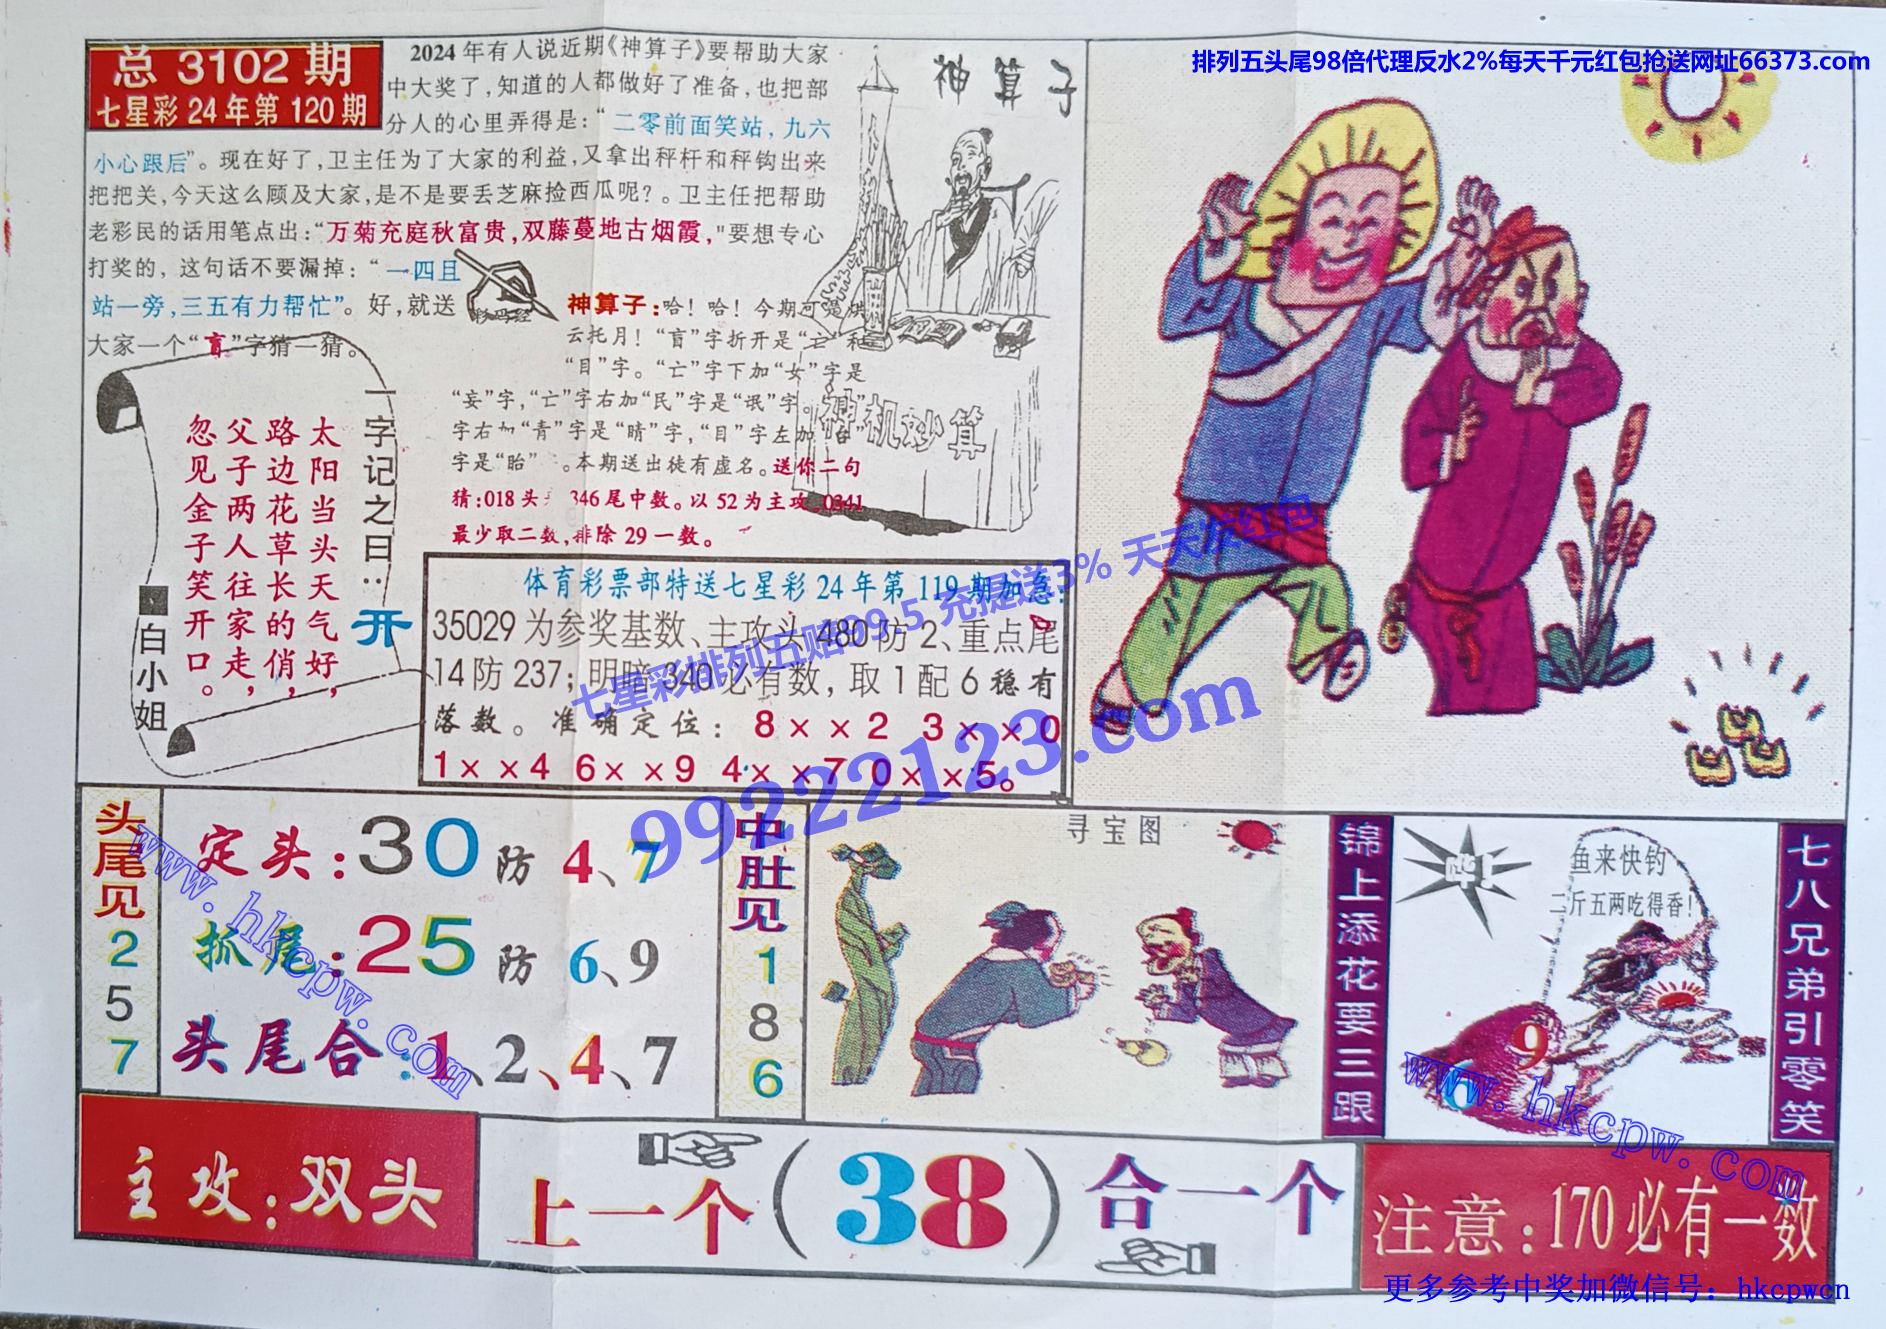 排列五头尾98倍代理反水2%每天千元红包抢送网址66373.com
总 3102 期
七星彩 24 年第 120 期
2024 年有人说近期《神算子》要帮助大家
中大奖了,知道的人都做好了准备,也把部
分人的心里弄得是:“二零前面笑站,九六
小心跟后”。现在好了,卫主任为了大家的利益,又拿出秤杆和秤钩出来
把把关,今天这么顾及大家,是不是要丢芝麻捡西瓜呢?。卫主任把帮助
老彩民的话用笔点出:“万菊充庭秋富贵,双藤蔓地古烟霞,"要想专心
打奖的, 这句话不要漏掉:“一四且
站一旁,三五有力帮忙”。好,就送
大家一个“盲”字猜一猜。
神算子
神算子:哈!哈!今期可
云托月!“盲”字折开是“亡”和
“目”字。“亡”字下加“女”字是
“妄”字,“亡”字右加“民”字是“氓”字。
字右加“青”字是“睛”字,“目”字左加
字是“眙”。本期送出徒有虚名。送你二句
猜:018 头 346 尾中数。以 52 为主攻,0341
最少取二数,排除 29 一数。
神机妙算
一字记之曰:开
太阳当头天气好,
路边花草长的俏,
父子两人往家走,
忽见金子笑开口。
白小姐
体育彩票部特送七星彩 24 年第 119 期加急:
35029 为参奖基数、主攻头 480 防 2、重点尾
14 防 237; 明暗 340 必有数, 取 1 配 6 稳有
落数。准确定位: 8××2 3××0
1××4 6××9 4××7 0××5。
七星彩排列五赔99.5 充提送3% 天天发红包
99222123.com
头尾见257
定头:30 防 4、7
抓尾:25 防 6、9
头尾合:1、2、4、7
www.hkcpw.com
中肚见186
寻宝图
锦上添花要三跟
鱼来快钓
二斤五两吃得香!
9
6
www.hkcpw.com
七八兄弟引零笑
主攻:双头
上一个(38)合一个
注意:170必有一数
更多参考中奖加微信号:hkcpwcn